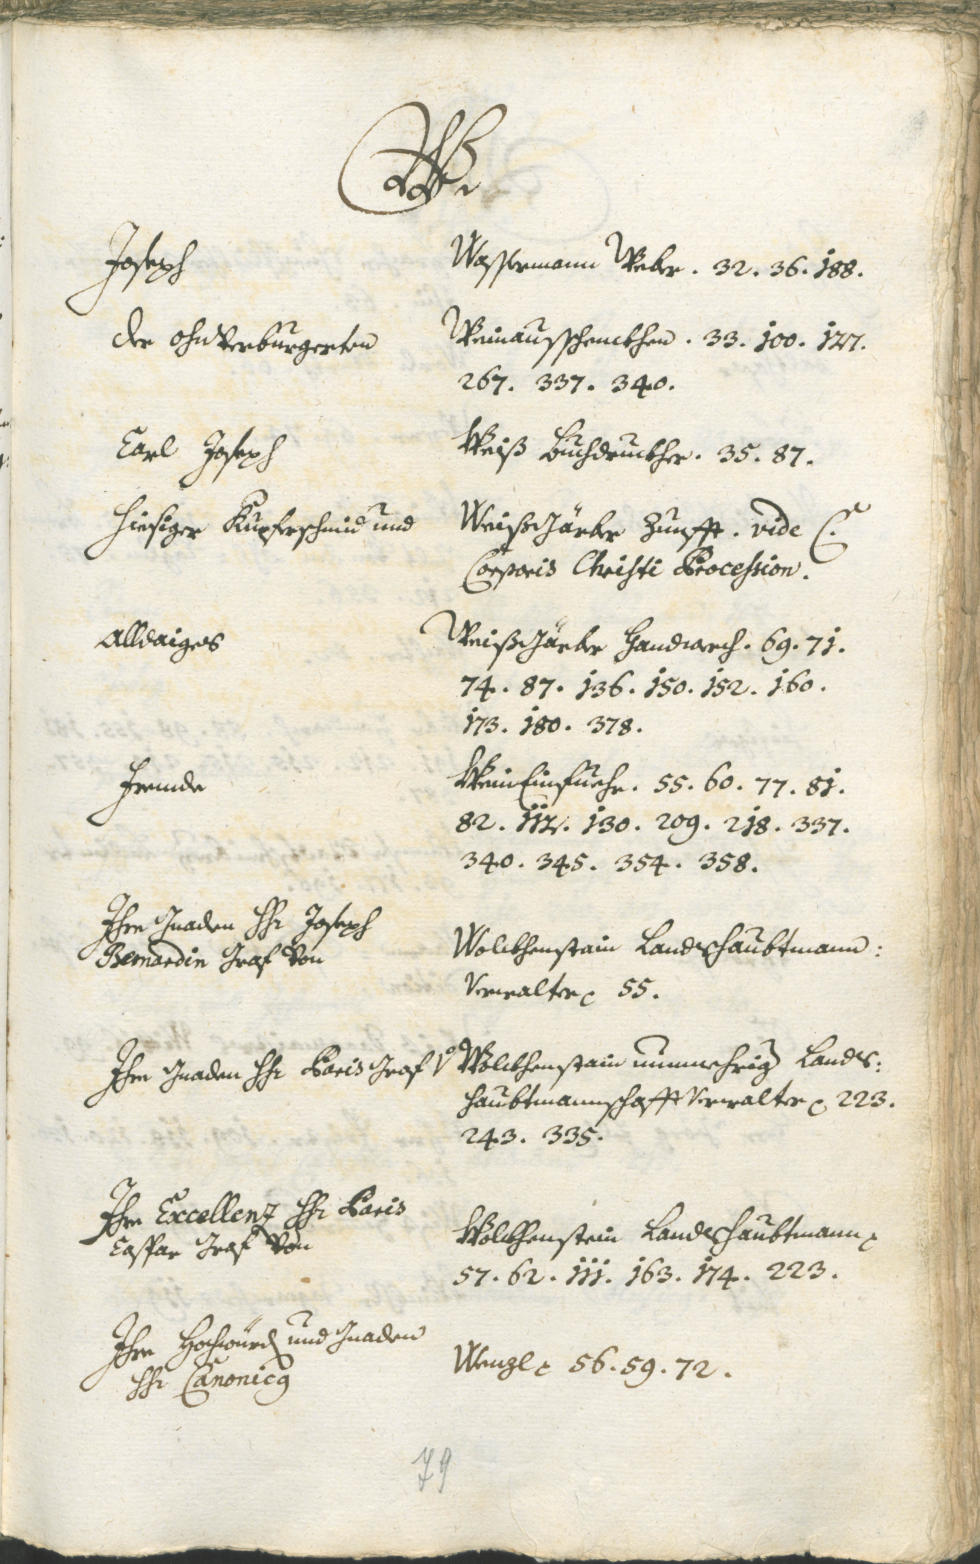 W
Joseph Wasserman Weber. 32. 36. 188.
der ohnverburgerten Weinausschenckhen. 33. 100. 127.
267. 337. 340.
Carl Joseph Weiß Buchdruckher. 35. 87.
hiesiger Kupferschmid und Weißgärber Zunfft. vide C.
Corporis Christi Procession.
alldaiges Weißgärber Handwerch. 69. 71.
74. 87. 136. 150. 152. 160.
173. 180. 378.
fremde Wein Einfuehr. 55. 60. 77. 81.
82. 112. 130. 209. 218. 337.
340. 345. 354. 358.
Ihro Gnaden Hr Joseph
Bernardin Graf von Wolckhenstain Landtshaubtmann:
Verwalter 55.
Ihro Gnaden Hr Paris Graf V. Wolckhenstain nunmehrig Landts:
haubtmannschafft Verwalter 223.
243. 335.
Ihro Excellenz Hr Paris
Caspar Graf von Wolckhenstein Landtshaubtmann
57. 62. 111. 163. 174. 223.
Ihro Hochwürd und Gnaden
Hr Canonicus Wenzl 56. 59. 72.
79